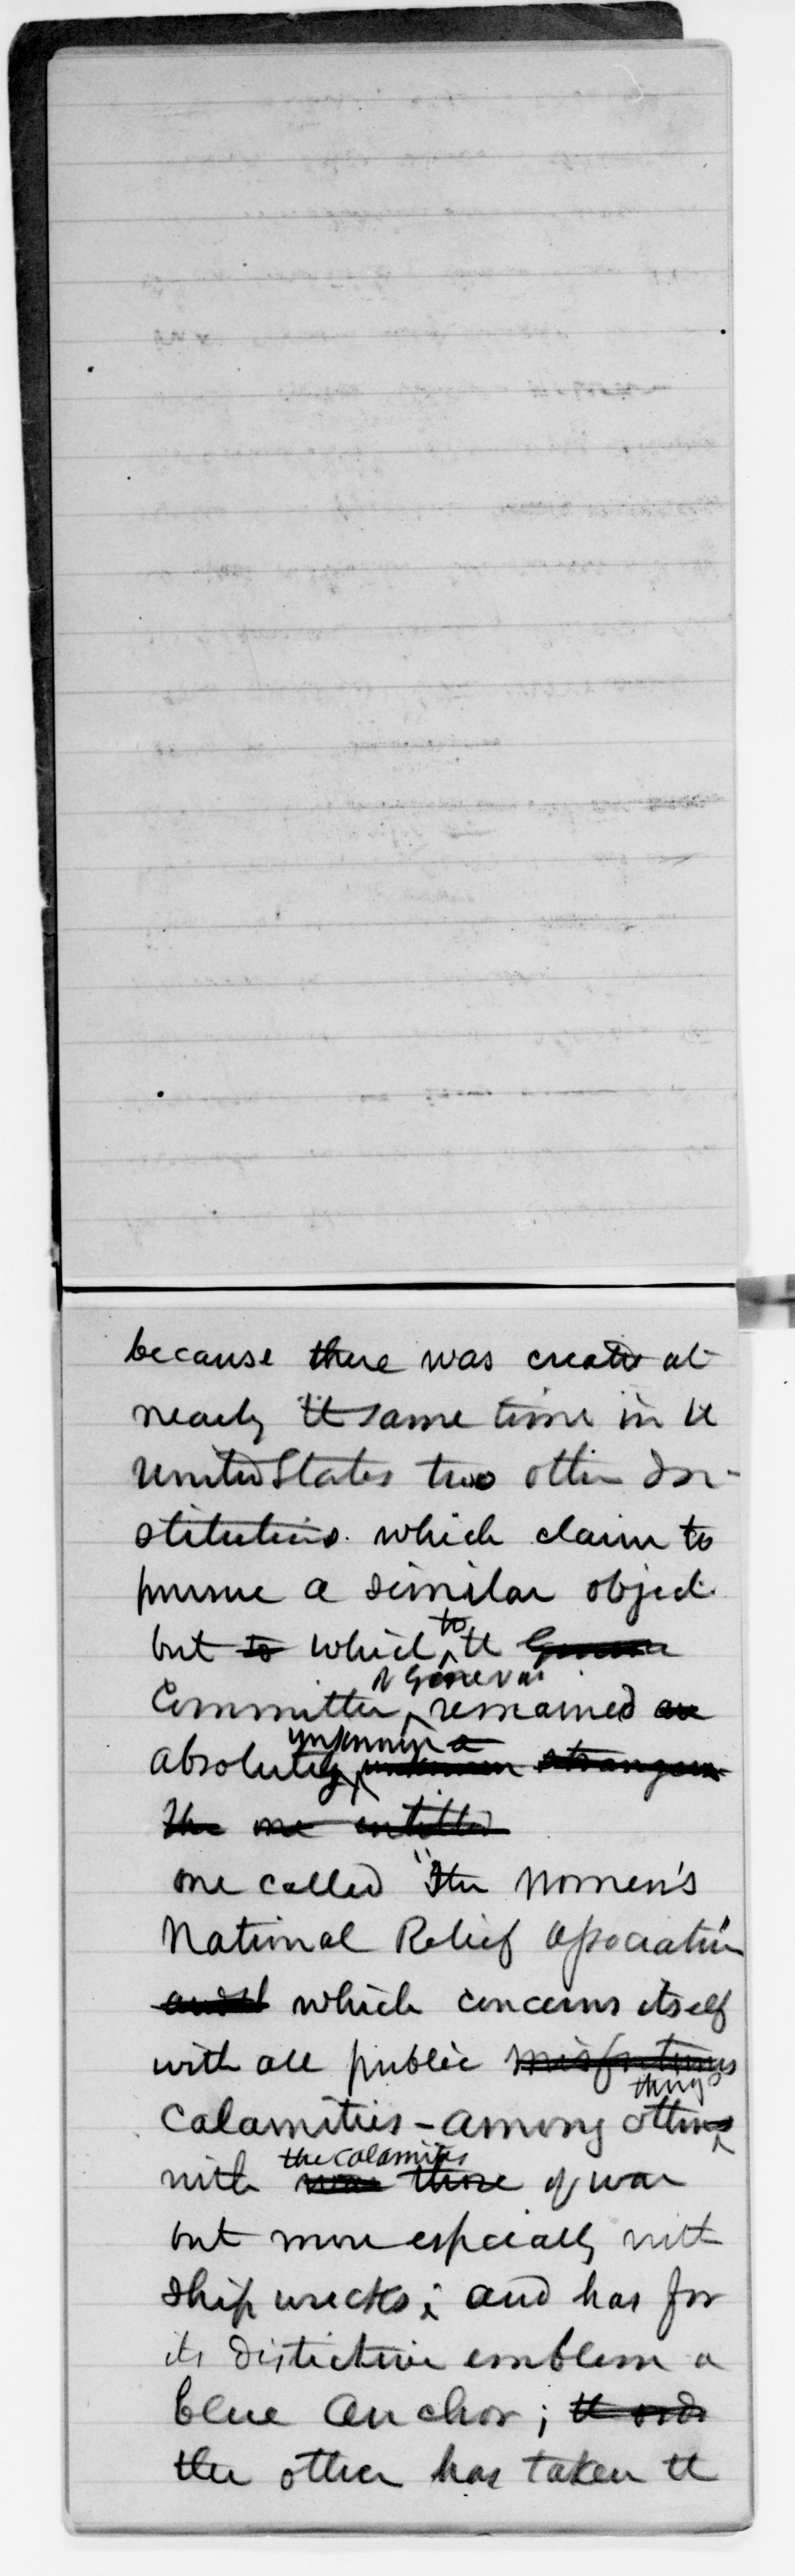 because there was created at
nearly the same time in the
United States two other In-
stitutions which claim to
pursue a similar object
but to which to the Geneva
of Geneva
Committee remained an
unknown a
absolutely unknown stranger
the one entitled
one called "the Women's
National Relief Association
which concerns itself
with all public misfortunes
things
calamities - among others
the calamities
with war those of war
but more especially with
ship wrecks; and has for
its distictive emblem a
blue anchor;
the other has taken the